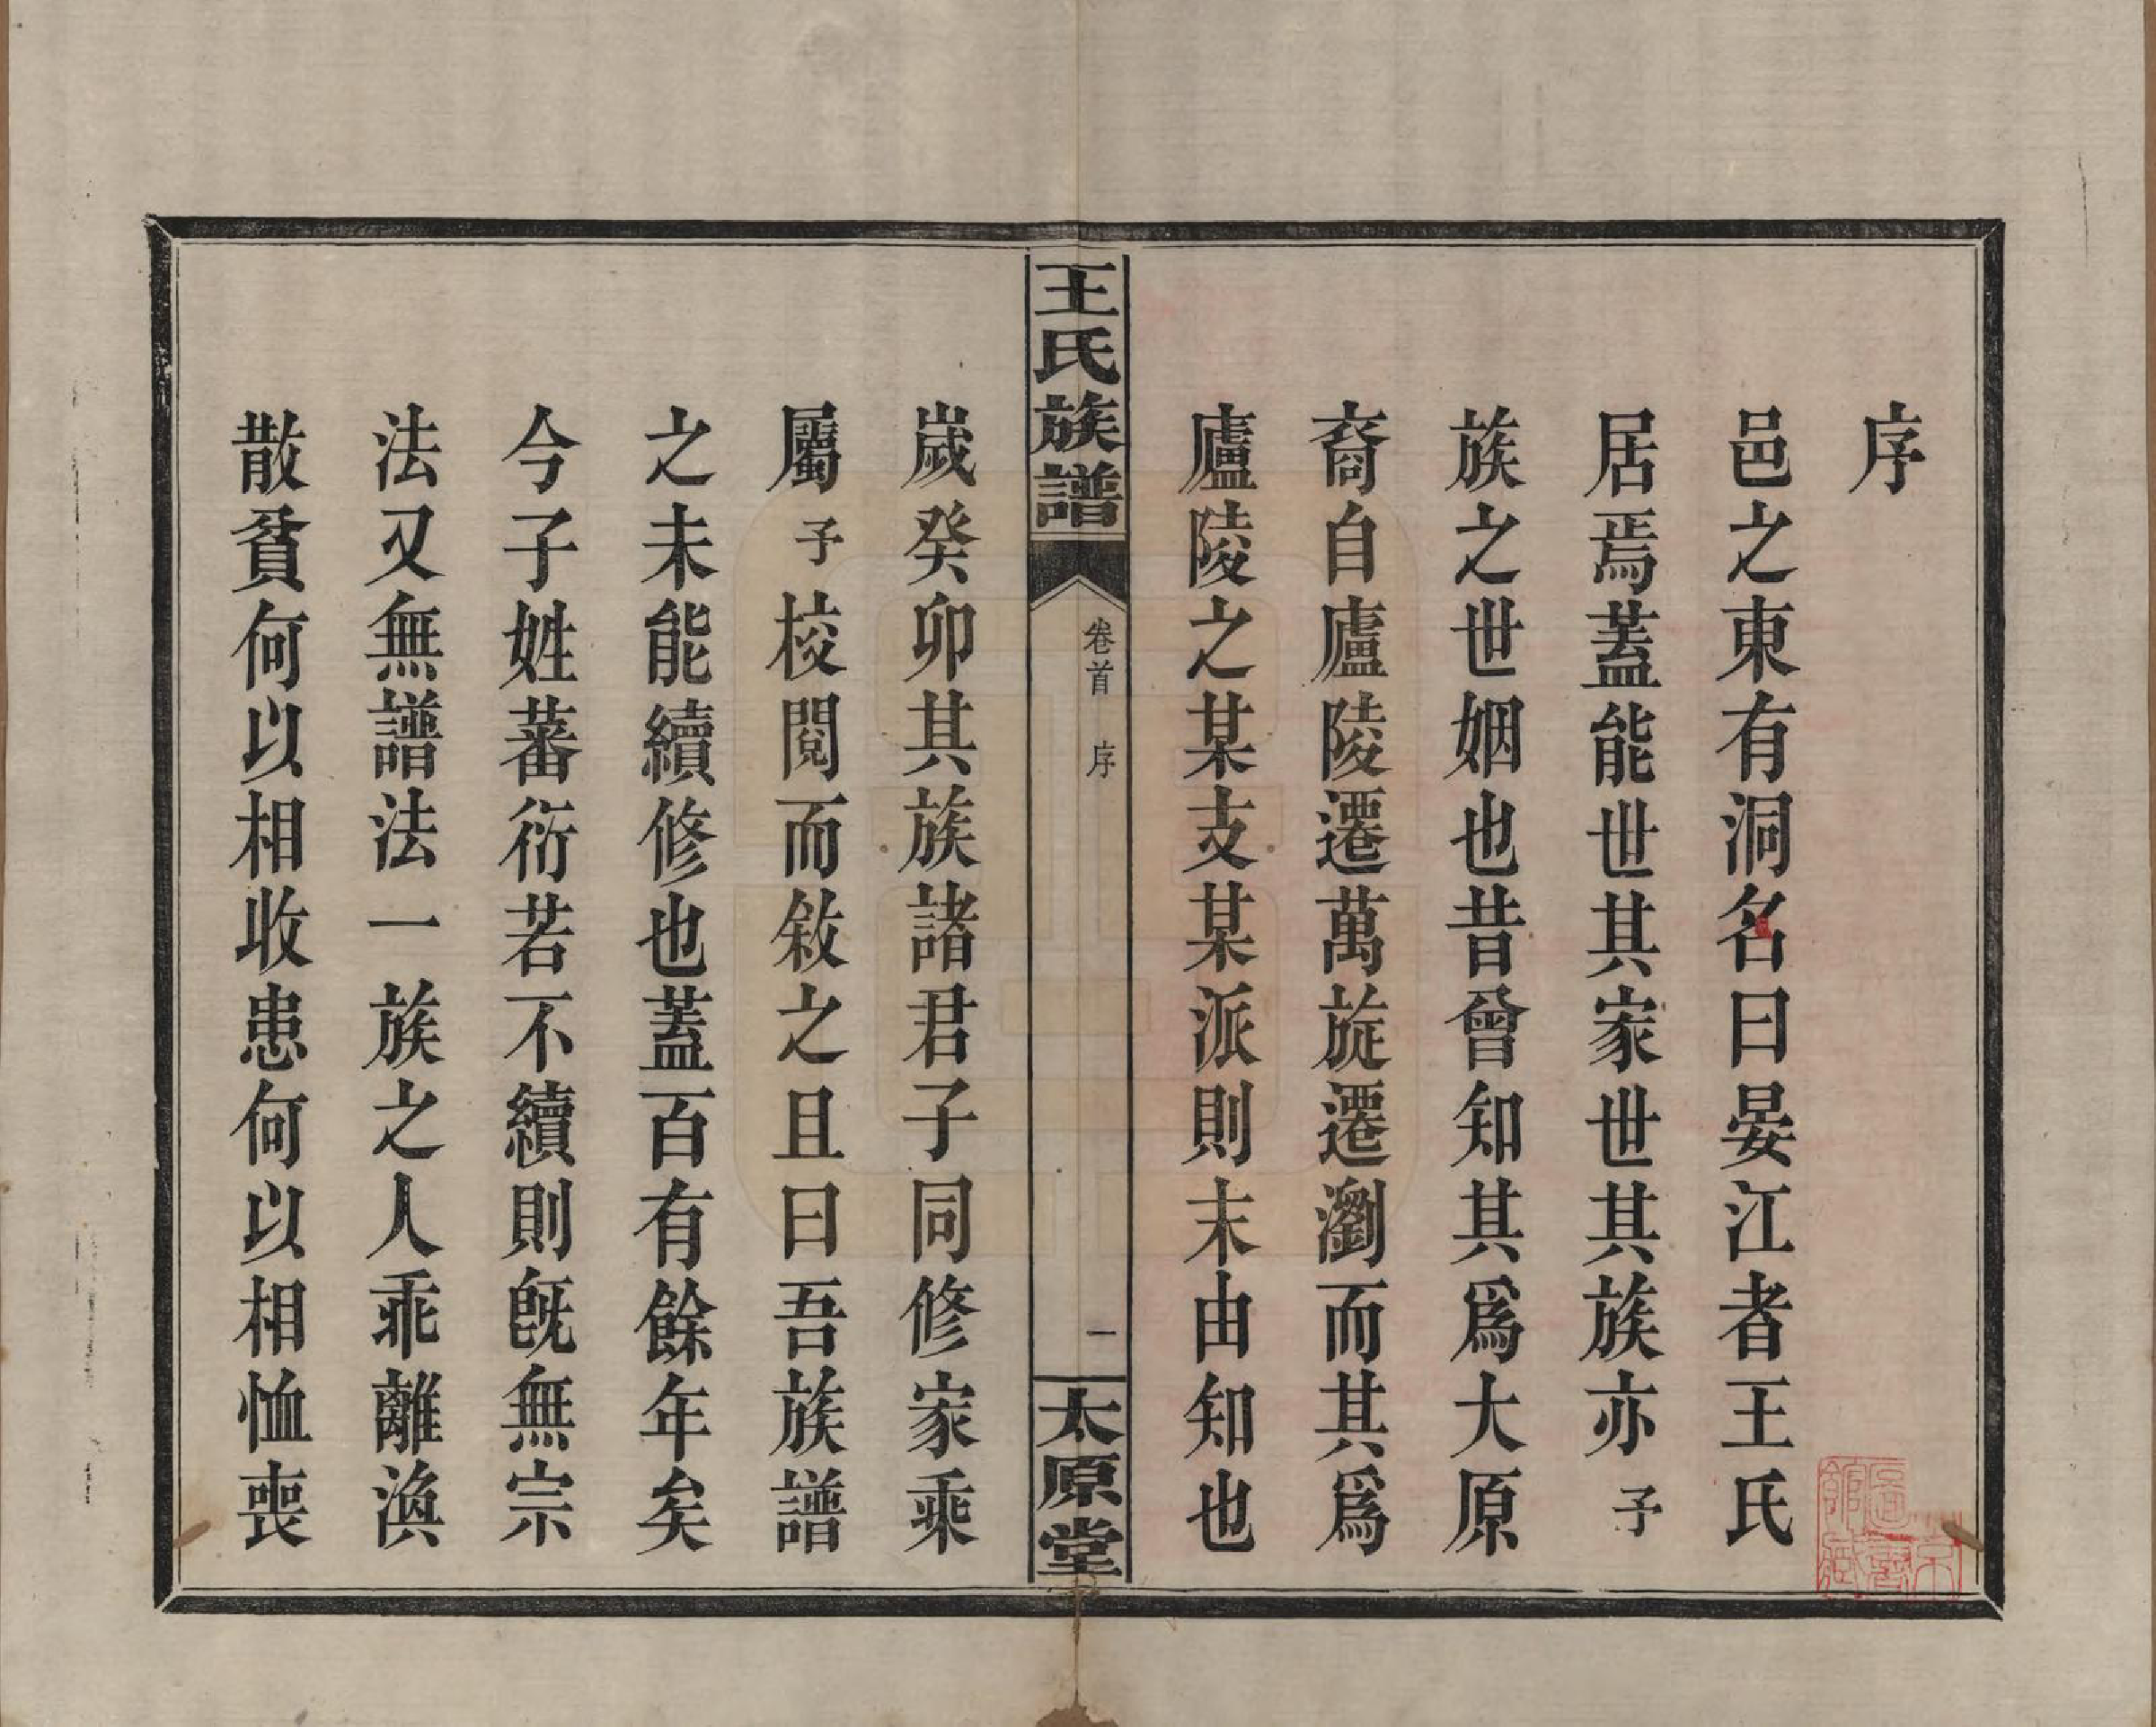 序
邑之東有洞名曰晏江者王氏
居焉蓋能世其家世其族亦予
族之世姻也昔曾知其爲大原
裔自廬陵遷萬旋遷瀏而其爲
廬陵之某支某派則末由知也
王氏族譜
卷首 序
一
太原堂
歲癸卯其族諸君子同修家乘
屬予校閱而敘之且曰吾族譜
之未能續修也蓋百有餘年矣
今子姓蕃衍若不續則旣無宗
法又無譜法一族之人乖離渙
散貧何以相收患何以相恤喪